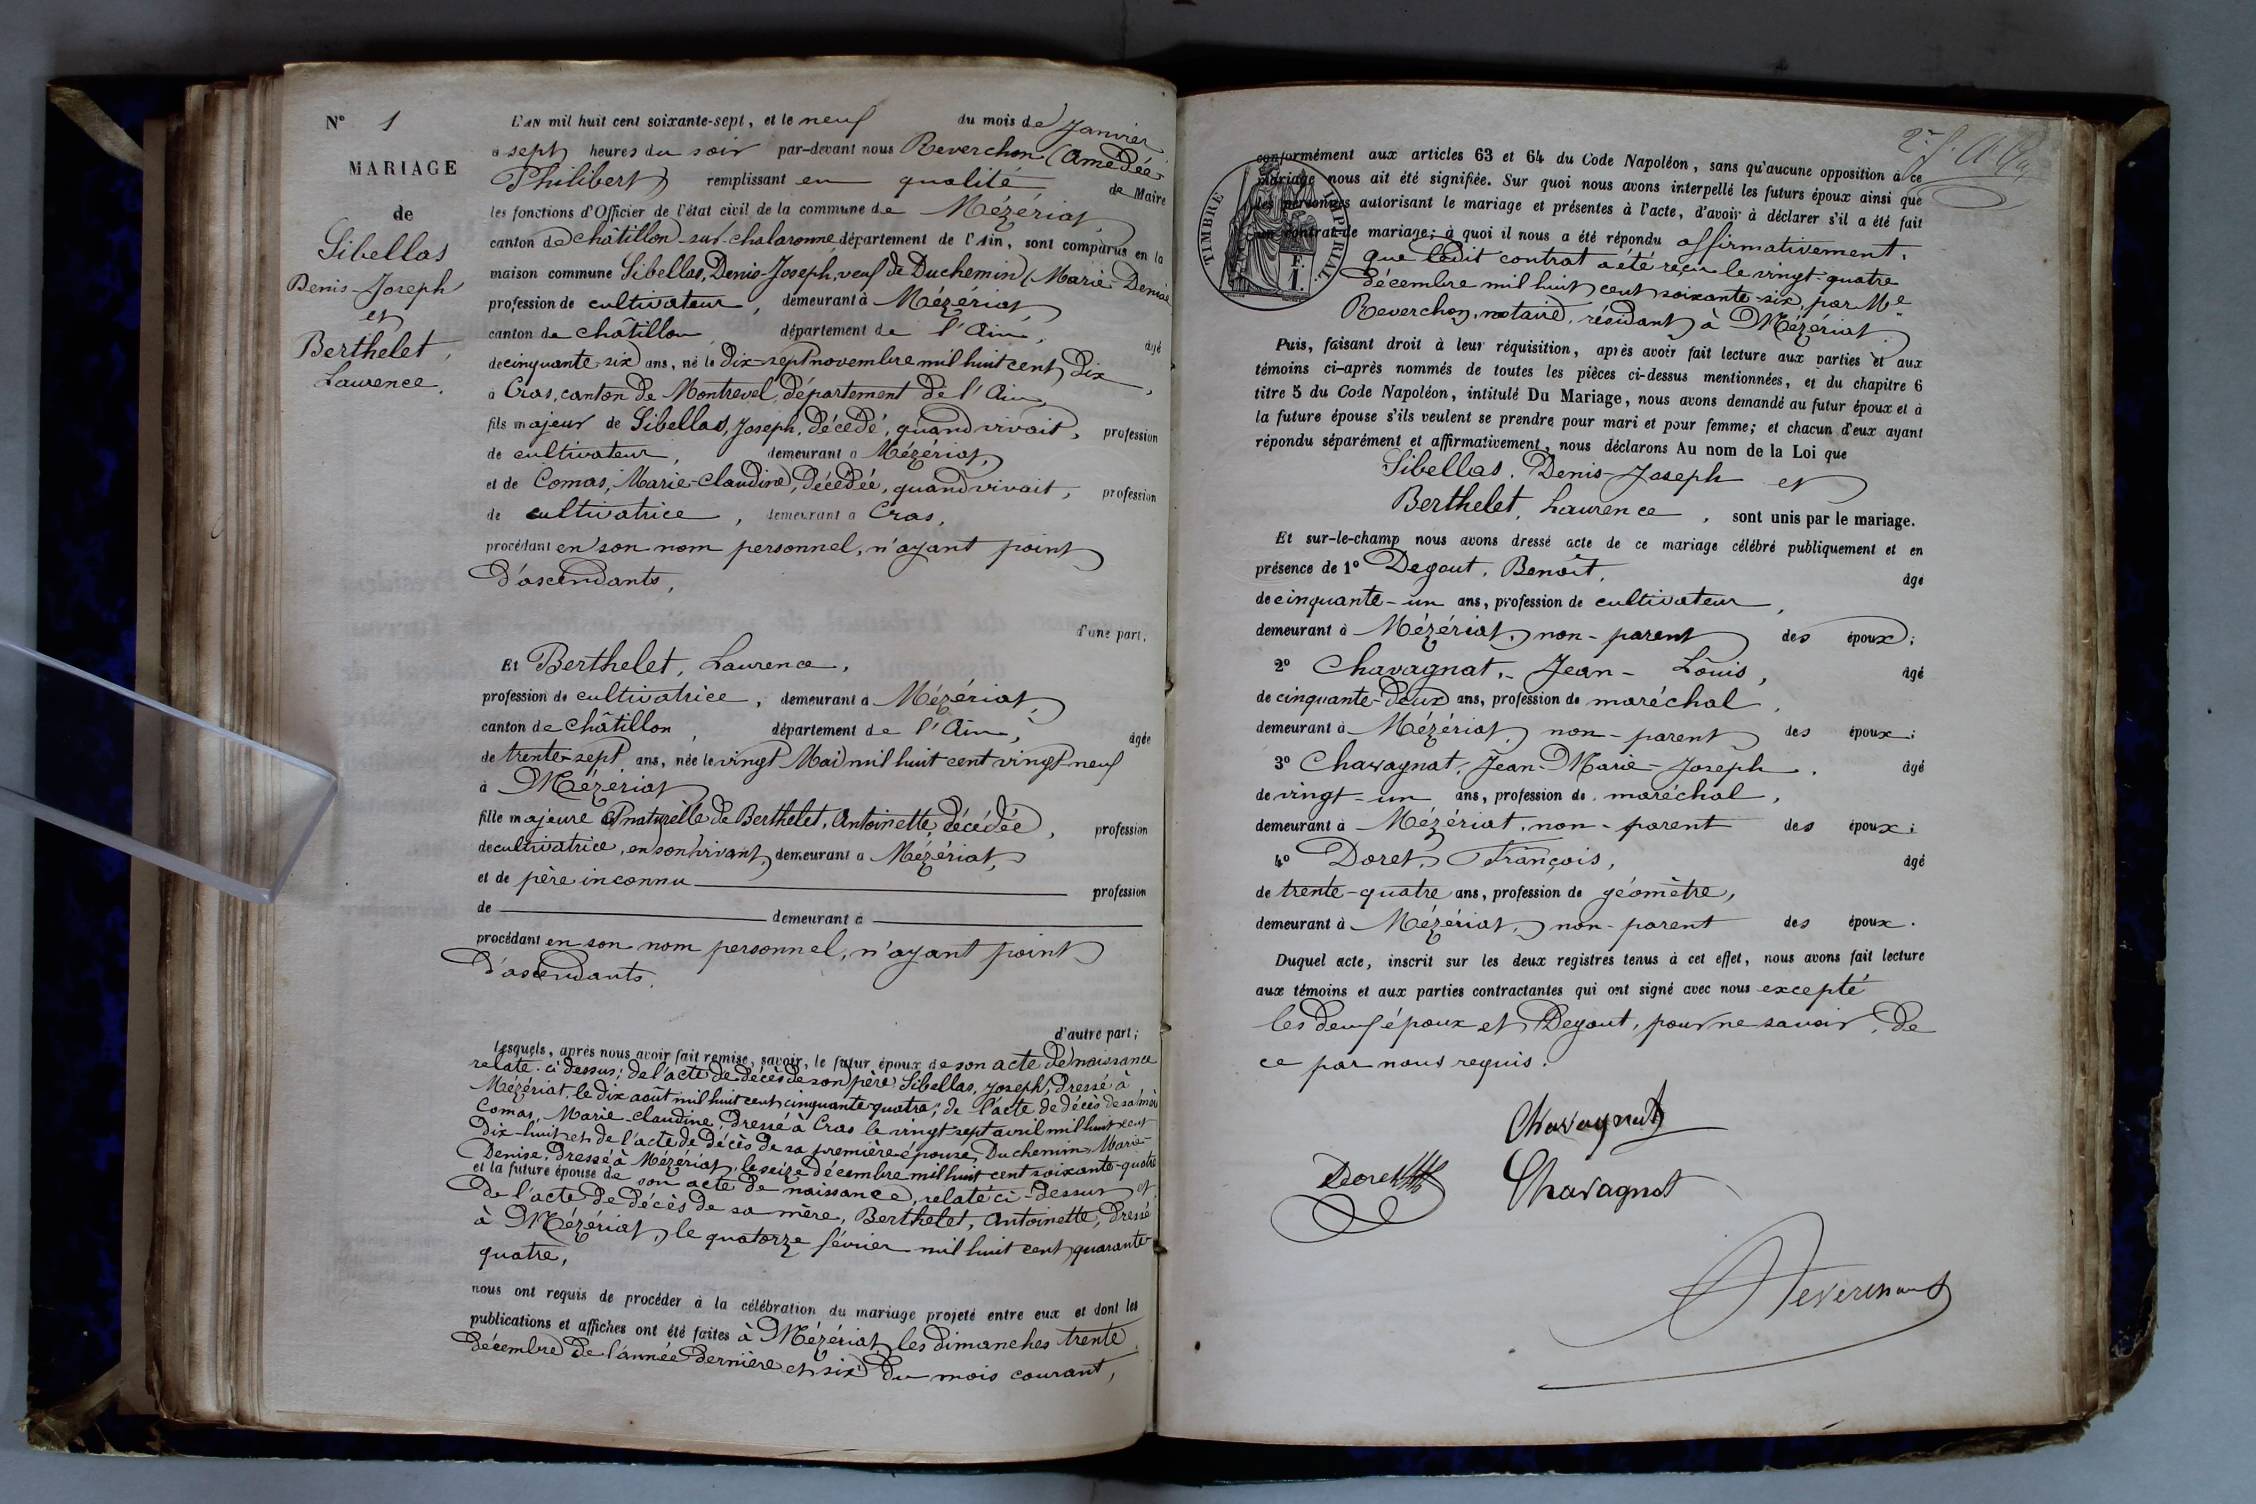 N° 1
MARIAGE
de
Sibellas
Denis-Joseph
et
Berthelet,
Laurence.
L'AN mil huit cent soixante-sept, et le neuf du mois de Janvier
à sept heures du soir par-devant nous Reverchon (Amédée-
Philibert) remplissant en qualité de Maire
les fonctions d'Officier de l'état civil de la commune de Mézériat,
canton de Châtillon-sur-Chalaronne département de l'Ain, sont comparus en la
maison commune Sibellas, Denis-Joseph, veuf de Duchemin (Marie-Denise
profession de cultivateur, demeurant à Mézériat
canton de Châtillon, département de l'Ain, âgé
de cinquante-six ans, né le dix-sept novembre mil huit cent dix,
à Cras, canton de Montrevel, département de l'Ain,
fils majeur de Sibellas, Joseph, décédé, quand vivait, profession
de cultivateur, demeurant à Mézériat,
et de Comas, Marie-Claudine, décédée, quand vivait, profession
de cultivatrice, demeurant à Cras,
procédant en son nom personnel, n'ayant point
d'ascendants,
d'une part,
Et Berthelet, Laurence,
profession de cultivatrice, demeurant à Mézériat,
canton de Châtillon, département de l'Ain, âgée
de trente-sept ans, née le vingt Mai mil huit cent vingt neuf
à Mézériat
fille majeure et naturelle de Berthelet, Antoinette, décédée, profession
de cultivatrice, en son vivant, demeurant à Mézériat,
et de père inconnu profession
de demeurant à
procédant en son nom personnel, n'ayant point
d'ascendants.
d'autre part;
Lesquels, après nous avoir fait remise, savoir, le futur époux de son acte de naissance
relaté ci dessus; de l'acte de décès de son père Sibellas, Joseph, dressé à
Mézériat, le dix août mil huit cent cinquante-quatre; de l'acte de décès de sa mère
Comas, Marie-Claudine, dressé à Cras le vingt-sept avril mil huit cent
dix-huit et de l'acte de décès de sa première épouse, Duchemin, Marie-
Denise, dressé à Mézériat, le seize décembre mil huit cent soixante-quatre
et la future épouse de son acte de naissance, relaté ci-dessus et
de l'acte de décès de sa mère, Berthelet, Antoinette, dressé
à Mézériat, le quatorze février mil huit cent quarante-
quatre,
nous ont requis de procéder à la célébration du mariage projeté entre eux et dont les
publications et affiches ont été faites à Mézériat, les dimanches trente
décembre de l'année dernière et six du mois courant,
TIMBRE IMPERIAL
F.
1.
conformément aux articles 63 et 64 du Code Napoléon, sans qu'aucune opposition à ce
mariage nous ait été signifiée. Sur quoi nous avons interpellé les futurs époux ainsi que
les personnes autorisant le mariage et présentes à l'acte, d'avoir à déclarer s'il a été fait
un contrat de mariage; à quoi il nous a été répondu affirmativement,
que ledit contrat a été reçu le vingt-quatre
décembre mil huit cent soixante-six, par Me
Reverchon, notaire, résidant à Mézériat.
Puis, faisant droit à leur réquisition, après avoir fait lecture aux parties et aux
témoins ci-après nommés de toutes les pièces ci-dessus mentionnées, et du chapitre 6
titre 5 du Code Napoléon, intitulé Du Mariage, nous avons demandé au futur époux et à
la future épouse s'ils veulent se prendre pour mari et pour femme; et chacun d'eux ayant
répondu séparément et affirmativement, nous déclarons Au nom de la Loi que
Sibellas, Denis-Joseph et
Berthelet, Laurence, sont unis par le mariage.
Et sur-le-champ nous avons dressé acte de ce mariage célébré publiquement et en
présence de 1° Degout, Benoît, âgé
de cinquante-un ans, profession de cultivateur,
demeurant à Mézériat, non-parent des époux;
2° Chavagnat, Jean-Louis, âgé
de cinquante-deux ans, profession de maréchal,
demeurant à Mézériat, non-parent des époux;
3° Chavagnat, Jean-Marie-Joseph, âgé
de vingt-un ans, profession de maréchal,
demeurant à Mézériat, non-parent des époux;
4° Doret, François, âgé
de trente-quatre ans, profession de géomètre,
demeurant à Mézériat, non-parent des époux.
Duquel acte, inscrit sur les deux registres tenus à cet effet, nous avons fait lecture
aux témoins et aux parties contractantes qui ont signé avec nous excepté
les deux époux et Degout, pour ne savoir, de
ce par nous requis.
Chavagnat
Doret
Chavagnat
Reverchon